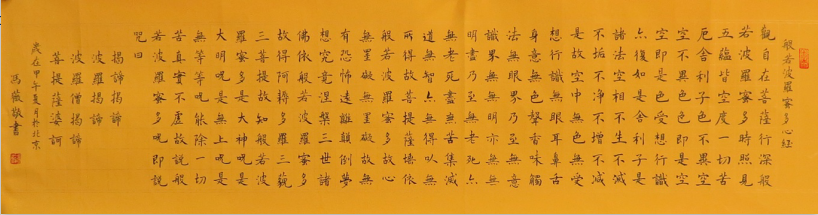 般若波羅蜜多心経
觀自在菩薩行深般
若波羅蜜多時照見
五蘊皆空度一切苦
厄舍利子色不異空
空不異色色即是空
空即是色受想行識
亦復如是舍利子是
諸法空相不生不滅
不垢不淨不增不減
是故空中無色無受
想行識無眼耳鼻舌
身意無色聲香味觸
法無眼界乃至無意
識界無無明亦無無
明盡乃至無老死亦
無老死盡無苦集滅
道無智亦無得以無
所得故菩提薩埵依
般若波羅蜜多故心
無罣礙無罣礙故無
有恐怖遠離顛倒夢
想究竟涅槃三世諸
佛依般若波羅蜜多
故得阿耨多羅三藐
三菩提故知般若波
羅蜜多是大神呪是
大明呪是無上呪是
無等等呪能除一切
苦真實不虛故說般
若波羅蜜多呪即說
呪曰
揭諦揭諦
波羅揭諦
波羅僧揭諦
菩提薩婆訶
歲在甲午夏月於北京
馮薇敬書